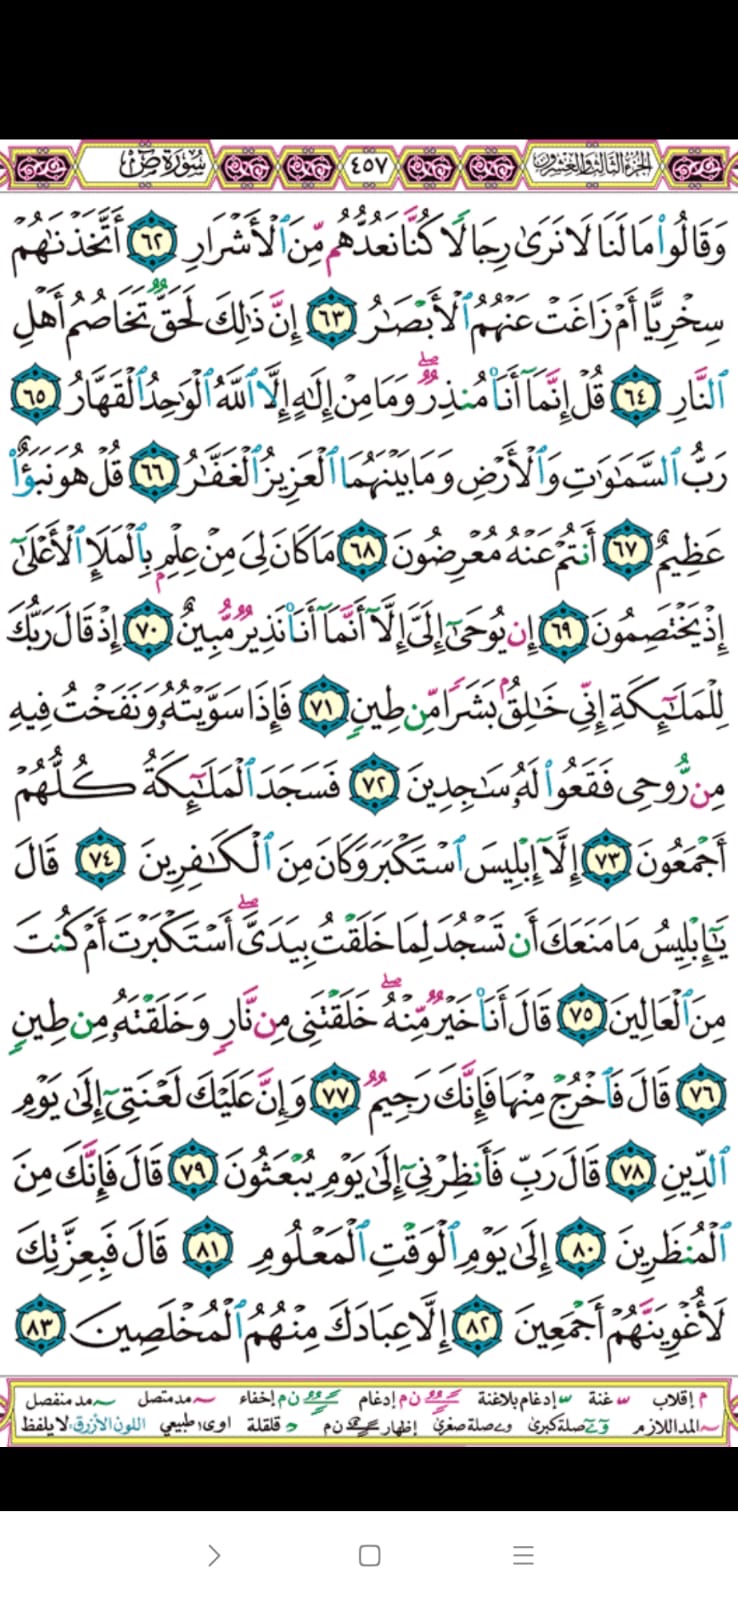 الجزء الثالث والعشرون ٤٥٧ سورة ص
وَقَالُوا۟ مَا لَنَا لَا نَرَىٰ رِجَالًا كُنَّا نَعُدُّهُم مِّنَ ٱلْأَشْرَارِ ٦٢ أَتَّخَذْنَٰهُمْ
سِخْرِيًّا أَمْ زَاغَتْ عَنْهُمُ ٱلْأَبْصَٰرُ ٦٣ إِنَّ ذَٰلِكَ لَحَقٌّ تَخَاصُمُ أَهْلِ
ٱلنَّارِ ٦٤ قُلْ إِنَّمَآ أَنَا۠ مُنذِرٌ ۖ وَمَا مِنْ إِلَٰهٍ إِلَّا ٱللَّهُ ٱلْوَٰحِدُ ٱلْقَهَّارُ ٦٥
رَبُّ ٱلسَّمَٰوَٰتِ وَٱلْأَرْضِ وَمَا بَيْنَهُمَا ٱلْعَزِيزُ ٱلْغَفَّٰرُ ٦٦ قُلْ هُوَ نَبَؤٌا۟
عَظِيمٌ ٦٧ أَنتُمْ عَنْهُ مُعْرِضُونَ ٦٨ مَا كَانَ لِىَ مِنْ عِلْمٍۭ بِٱلْمَلَإِ ٱلْأَعْلَىٰٓ
إِذْ يَخْتَصِمُونَ ٦٩ إِن يُوحَىٰٓ إِلَىَّ إِلَّآ أَنَّمَآ أَنَا۠ نَذِيرٌ مُّبِينٌ ٧٠ إِذْ قَالَ رَبُّكَ
لِلْمَلَٰٓئِكَةِ إِنِّى خَٰلِقٌۢ بَشَرًا مِّن طِينٍ ٧١ فَإِذَا سَوَّيْتُهُۥ وَنَفَخْتُ فِيهِ
مِن رُّوحِى فَقَعُوا۟ لَهُۥ سَٰجِدِينَ ٧٢ فَسَجَدَ ٱلْمَلَٰٓئِكَةُ كُلُّهُمْ
أَجْمَعُونَ ٧٣ إِلَّآ إِبْلِيسَ ٱسْتَكْبَرَ وَكَانَ مِنَ ٱلْكَٰفِرِينَ ٧٤ قَالَ
يَٰٓإِبْلِيسُ مَا مَنَعَكَ أَن تَسْجُدَ لِمَا خَلَقْتُ بِيَدَىَّ ۖ أَسْتَكْبَرْتَ أَمْ كُنتَ
مِنَ ٱلْعَالِينَ ٧٥ قَالَ أَنَا۠ خَيْرٌ مِّنْهُ ۖ خَلَقْتَنِى مِن نَّارٍ وَخَلَقْتَهُۥ مِن طِينٍ
٧٦ قَالَ فَٱخْرُجْ مِنْهَا فَإِنَّكَ رَجِيمٌ ٧٧ وَإِنَّ عَلَيْكَ لَعْنَتِىٓ إِلَىٰ يَوْمِ
ٱلدِّينِ ٧٨ قَالَ رَبِّ فَأَنظِرْنِىٓ إِلَىٰ يَوْمِ يُبْعَثُونَ ٧٩ قَالَ فَإِنَّكَ مِنَ
ٱلْمُنظَرِينَ ٨٠ إِلَىٰ يَوْمِ ٱلْوَقْتِ ٱلْمَعْلُومِ ٨١ قَالَ فَبِعِزَّتِكَ
لَأُغْوِيَنَّهُمْ أَجْمَعِينَ ٨٢ إِلَّا عِبَادَكَ مِنْهُمُ ٱلْمُخْلَصِينَ ٨٣
م إقلاب غنة إدغام بلاغنة ن م إدغام ن م إخفاء مد متصل مد منفصل
المد اللازم صلة كبرى صلة صغرى إظهار ن م قلقلة اوى طبيعي اللون الأزرق: لا يلفظ